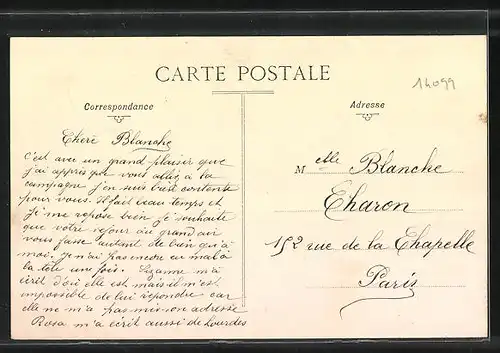 14099
CARTE POSTALE
Correspondance
Adresse
Cheré Blanche
C'est avec un grand plaisir que
j'ai appris que vous alliez à la
campagne j'en suis très contente
pour vous. Il fait beau temps et
je me repose bien je souhaite
que votre séjour au grand air
vous fasse autant de bien qu'à
moi. Je n'ai pas encore eu mal à
la tête une fois. Suzanne m'a
écrit d'où elle est mais il m'est
impossible de lui répondre car
elle ne m'a pas mis son adresse
Rosa m'a écrit aussi de Lourdes
Melle Blanche
Charon
152 rue de la Chapelle
Paris